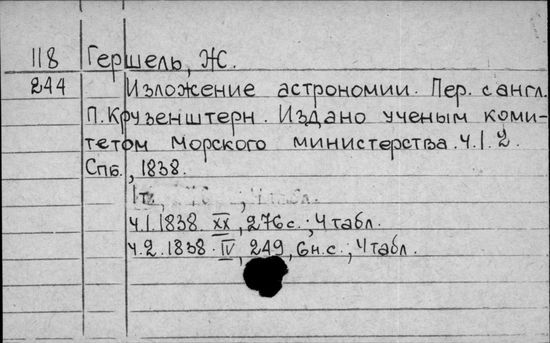 118 Гершель, Ж.
244 Изложение астрономии. Пер. с англ.
П. Крузенштерн. Издано ученым коми-
тетом Морского министерства. Ч.1.2.
Спб., 1838.
Ч.1.1838. XX, 276 с.; 4 табл.
Ч.2.1838. IV, 249, 6 н.с.; 4 табл.